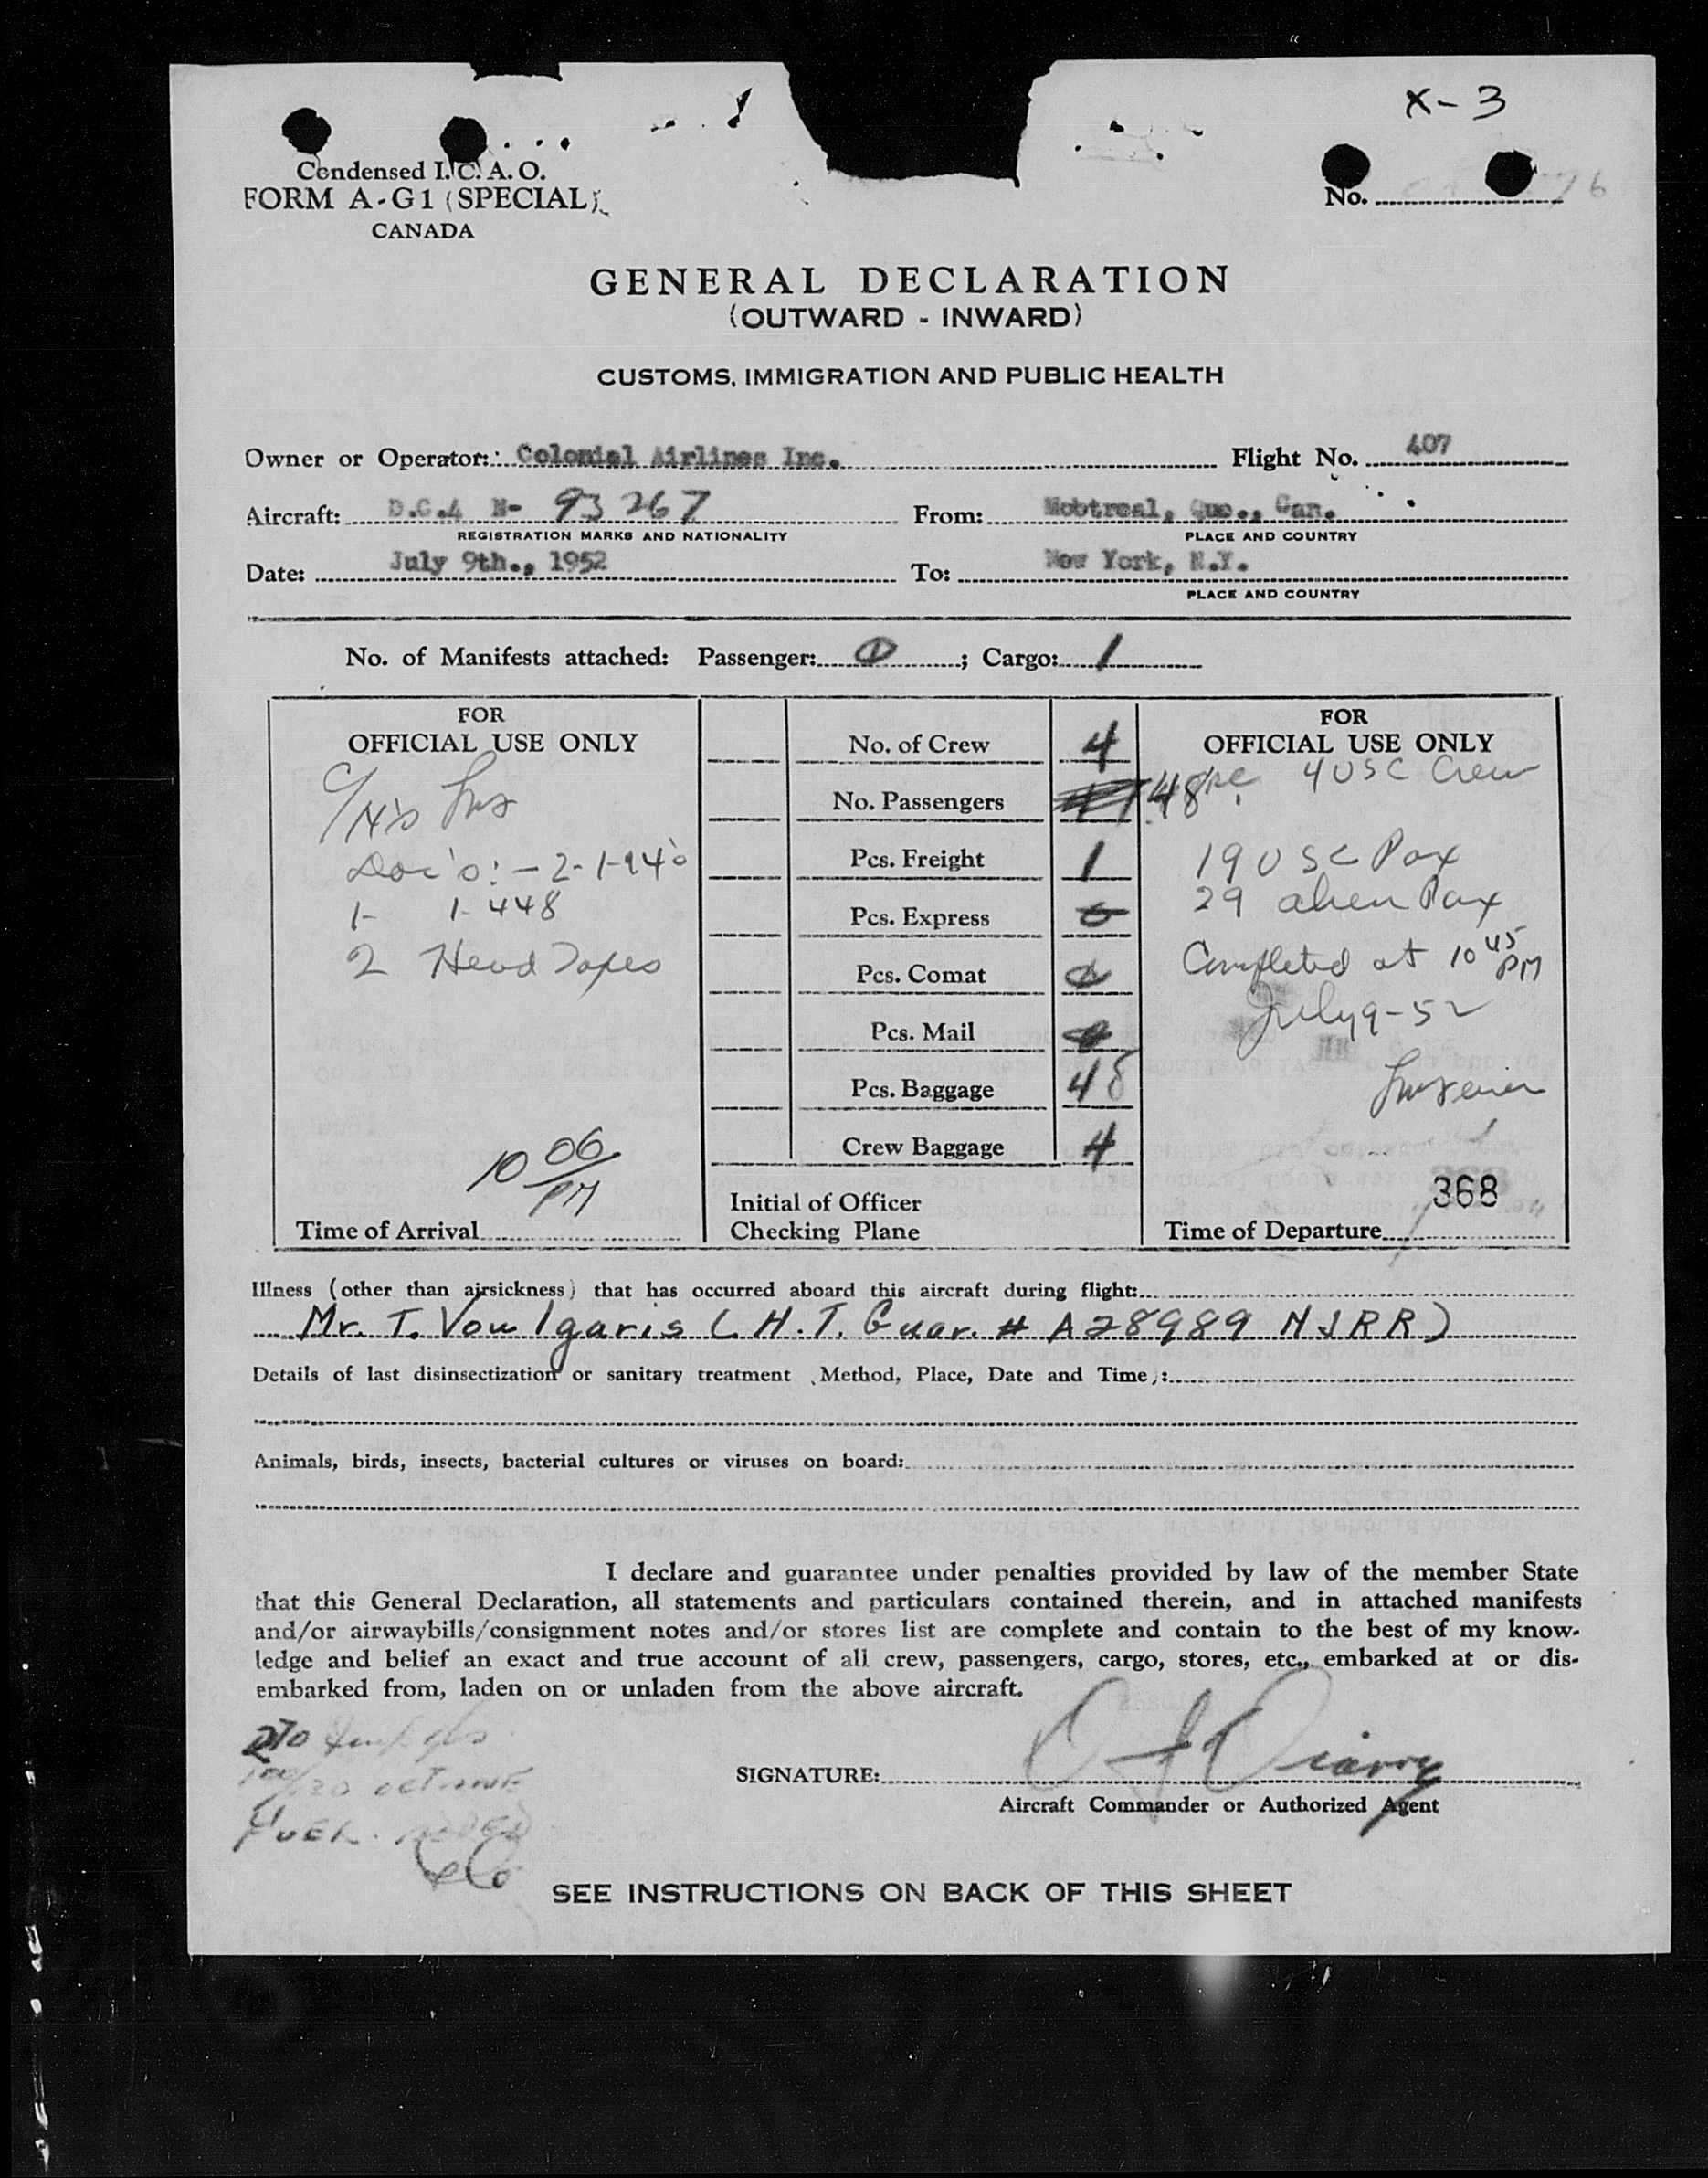 X-3
Condensed I.C.A.O.
FORM A-G1 (SPECIAL)
CANADA
No. 76
GENERAL DECLARATION
(OUTWARD - INWARD)
CUSTOMS, IMMIGRATION AND PUBLIC HEALTH
Owner or Operator: Colonial Airlines Inc. Flight No. 407
Aircraft: D.C.4 N- 93267 From: Mobtreal, Que., Can.
REGISTRATION MARKS AND NATIONALITY PLACE AND COUNTRY
Date: July 9th., 1952 To: New York, N.Y.
PLACE AND COUNTRY
No. of Manifests attached: Passenger: 0; Cargo: 1
FOR
OFFICIAL USE ONLY
Doc's: - 2-1-
1- 1-448
2 Head Taxes
10 06 PM
Time of Arrival
No. of Crew 4
No. Passengers 48
Pcs. Freight 1
Pcs. Express 0
Pcs. Comat 0
Pcs. Mail
Pcs. Baggage 48
Crew Baggage 4
Initial of Officer
Checking Plane
FOR
OFFICIAL USE ONLY
4 USC Crew
19 USC Pax
29 alien Pax
Completed at 10 45 PM
July 9-52
368
Time of Departure
Illness (other than airsickness) that has occurred aboard this aircraft during flight:
Mr. T. Voulgaris (H.T. Guar. # A28989 NJRR)
Details of last disinsectization or sanitary treatment (Method, Place, Date and Time):
Animals, birds, insects, bacterial cultures or viruses on board:
I declare and guarantee under penalties provided by law of the member State
that this General Declaration, all statements and particulars contained therein, and in attached manifests
and/or airwaybills/consignment notes and/or stores list are complete and contain to the best of my know-
ledge and belief an exact and true account of all crew, passengers, cargo, stores, etc., embarked at or dis-
embarked from, laden on or unladen from the above aircraft.
270 Imp. gls
100/130 OCTANE
FUEL
SIGNATURE:
Aircraft Commander or Authorized Agent
SEE INSTRUCTIONS ON BACK OF THIS SHEET